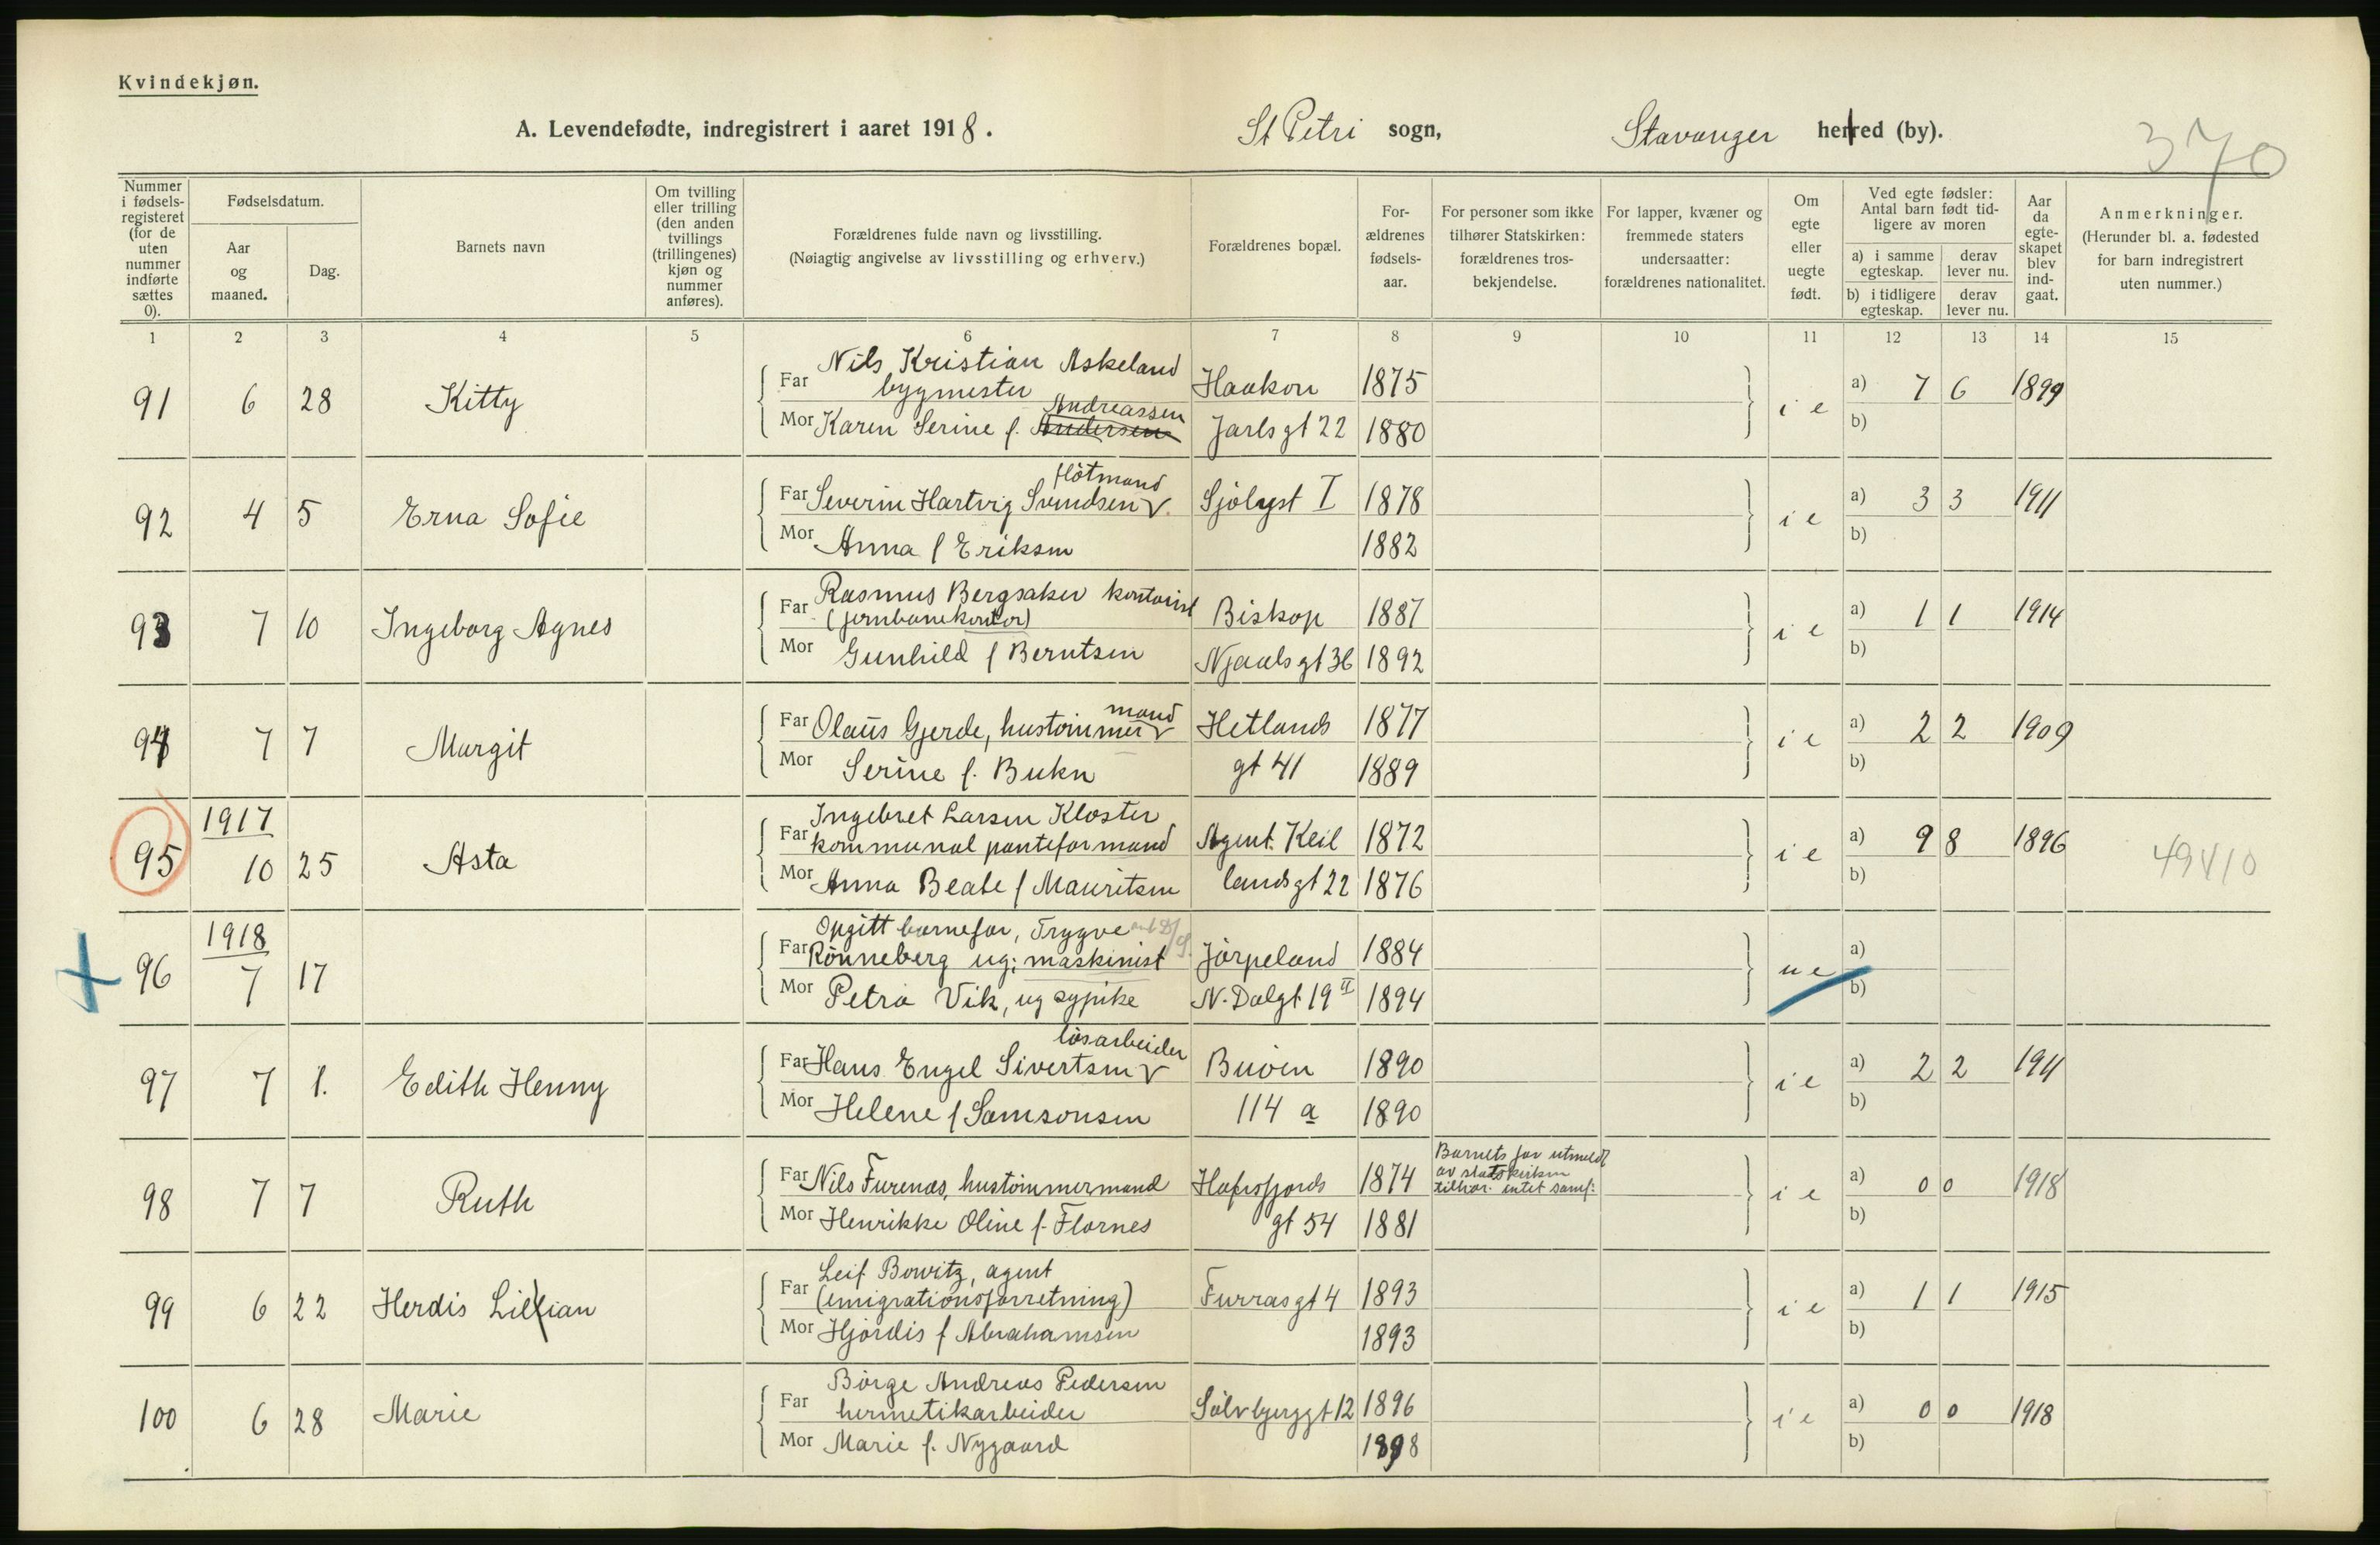 Kvindekjøn.
A. Levendefødte, indregistrert i aaret 1918.
St Petri sogn,
Stavanger herred (by).
370
Nummer i fødsels-registeret (for de uten nummer indførte sættes 0).
Fødselsdatum.
Aar og maaned.
Dag.
Barnets navn
Om tvilling eller trilling (den anden tvillings (trillingenes) kjøn og nummer anføres).
Forældrenes fulde navn og livsstilling.
(Nøiagtig angivelse av livsstilling og erhverv.)
Forældrenes bopæl.
For-ældrenes fødsels-aar.
For personer som ikke tilhører Statskirken: forældrenes tros-bekjendelse.
For lapper, kvæner og fremmede staters undersaatter: forældrenes nationalitet.
Om egte eller uegte født.
Ved egte fødsler: Antal barn født tid-ligere av moren
a) i samme egteskap.
derav lever nu.
b) i tidligere egteskap.
derav lever nu.
Aar da egte-skapet blev ind-gaat.
Anmerkninger.
(Herunder bl. a. fødested for barn indregistrert uten nummer.)
1 2 3 4 5 6 7 8 9 10 11 12 13 14 15
Nils Kristian Askeland
91 6 28 Kitty Far bygmester Haakon 1875 i e a) 7 6 1899
Andreassen
Mor Karen Serine f. Andersen Jarls gt 22 1880 b)
fløtmand
92 4 5 Erna Sofie Far Severin Hartvig Svendsen v. Sjölyst I 1878 i e a) 3 3 1911
Mor Anna f Eriksen 1882 b)
Rasmus Bergsaker kontorist
93 7 10 Ingeborg Agnes Far (jernbanekontor) Biskop 1887 i e a) 1 1 1914
Mor Gunhild f Berntsen Njaals gt 36 1892 b)
mand
94 7 7 Margit Far Olaus Gjerde, hustömmer v Hetlands 1877 i e a) 2 2 1909
Mor Serine f. Bukn gt 41 1889 b)
1917 Ingebret Larsen Kloster
95 10 25 Asta Far kommunal panteformand Agent Keil 1872 i e a) 9 8 1896 49410
Mor Anna Beate f Mauritsen lands gt 22 1876 b)
1918 Opgitt barnefar, Trygve
96 7 17 Far Rönneberg ug: maskinist Jörpeland 1884 u e a)
Mor Petra Vik, ug sypike N. Dalgt 19 II 1894 b)
lösarbeider
97 7 1. Edith Henny Far Hans Engel Sivertsen v Buöen 1890 i e a) 2 2 1911
Mor Helene f Samsonsen 114 a 1890 b)
98 7 7 Ruth Far Nils Furenæs, hustömmermand Hafrsfjords 1874 Barnets far utmeldt av statskirken tilhör. intet samf: i e a) 0 0 1918
Mor Henrikke Oline f. Flornes gt 54 1881 b)
Leif Bowitz, agent
99 6 22 Herdis Lillian Far (emigrationsforretning) Furras gt 4 1893 i e a) 1 1 1915
Mor Hjördis f Abrahamsen 1893 b)
Börge Andreas Pedersen
100 6 28 Marie Far hermetikarbeider Sölvbjerggt 12 1896 i e a) 0 0 1918
Mor Marie f. Nygaard 1898 b)